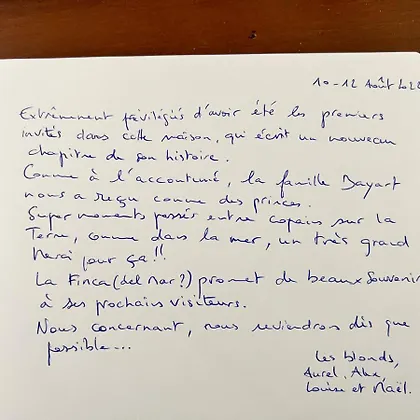 10-12 Août 202
Extrêmement privilégiés d'avoir été les premiers
invités dans cette maison, qui écrit un nouveau
chapitre de son histoire.
Comme à l'accoutumé, la famille Bayart
nous a reçu comme des princes.
Super moments passés entre copains sur la
Terre, comme dans la mer, un très grand
Merci pour ça!!
La Finca (del Mar?) promet de beaux souvenir
à ses prochains visiteurs.
Nous concernant, nous reviendrons dès que
possible...
Les blonds,
Aurel, Alex,
Louise et Naël.